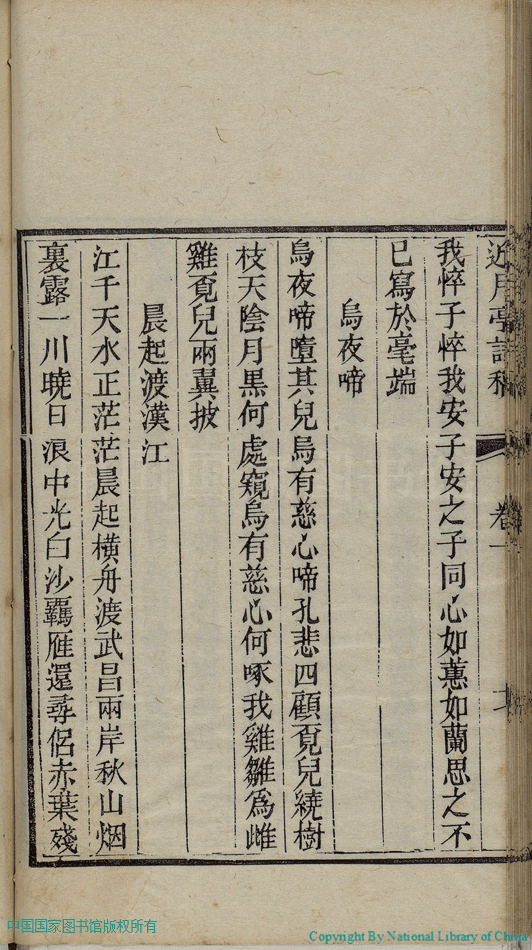 近月亭詩稿 卷一
我悴子悴我安子安之子同心如蕙如蘭思之不
已寫於毫端
烏夜啼
烏夜啼墮其兒烏有慈心啼孔悲四顧覔兒繞樹
枝天陰月黒何處窺烏有慈心何啄我雞雛爲雌
雞覔兒兩翼披
晨起渡漢江
江干天水正茫茫晨起橫舟渡武昌兩岸秋山烟
裏露一川曉日浪中光白沙羈雁還尋侶赤葉殘
中国国家图书馆版权所有
Copyright By National Library of China